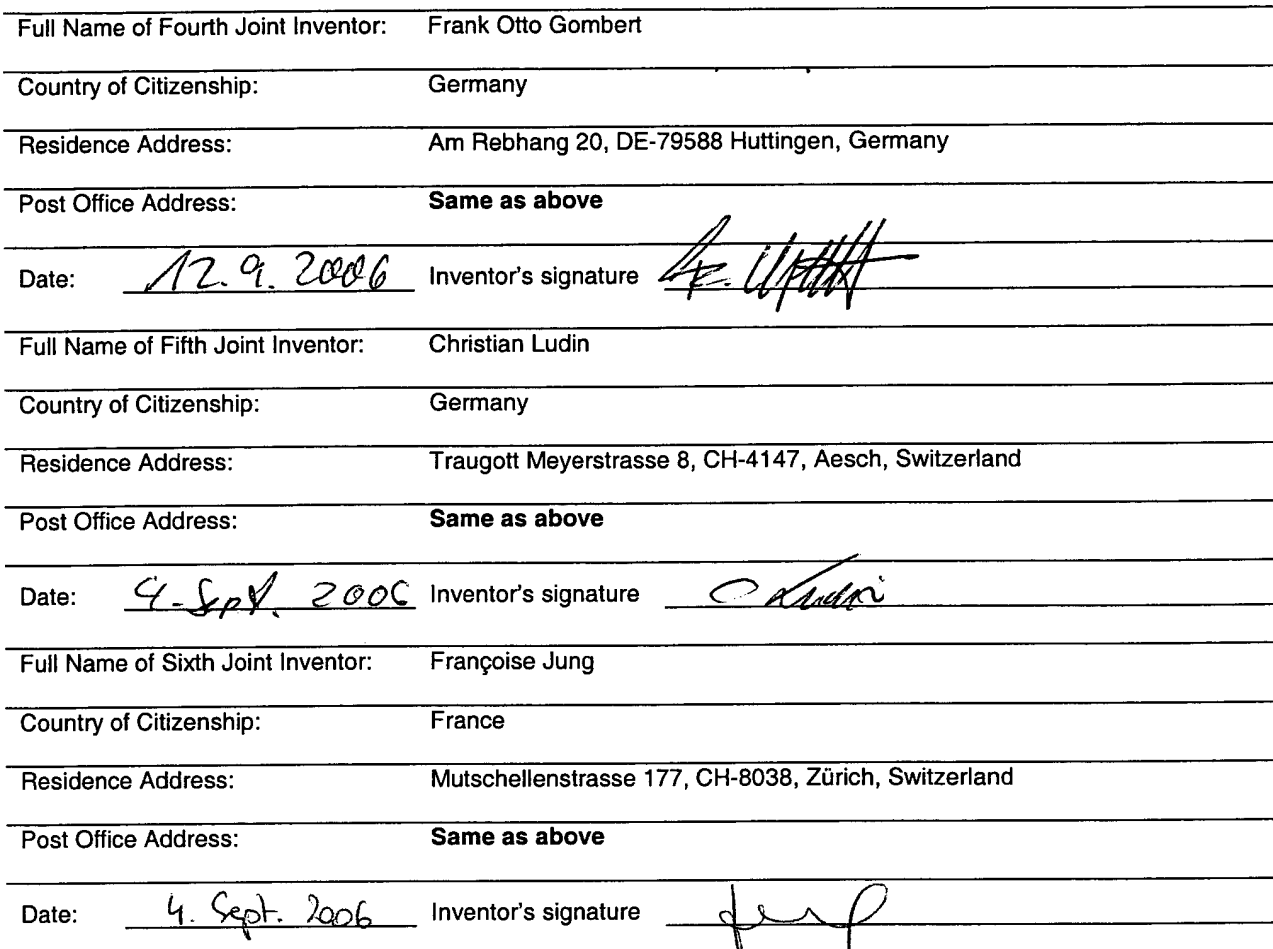 Full Name of Fourth Joint Inventor: Frank Otto Gombert
Country of Citizenship: Germany
Residence Address: Am Rebhang 20, DE-79588 Huttingen, Germany
Post Office Address: Same as above
Date: 12. 9. 2006 Inventor's signature
Full Name of Fifth Joint Inventor: Christian Ludin
Country of Citizenship: Germany
Residence Address: Traugott Meyerstrasse 8, CH-4147, Aesch, Switzerland
Post Office Address: Same as above
Date: 4. Sept. 2006 Inventor's signature C Ludin
Full Name of Sixth Joint Inventor: Françoise Jung
Country of Citizenship: France
Residence Address: Mutschellenstrasse 177, CH-8038, Zürich, Switzerland
Post Office Address: Same as above
Date: 4. Sept. 2006 Inventor's signature Jung